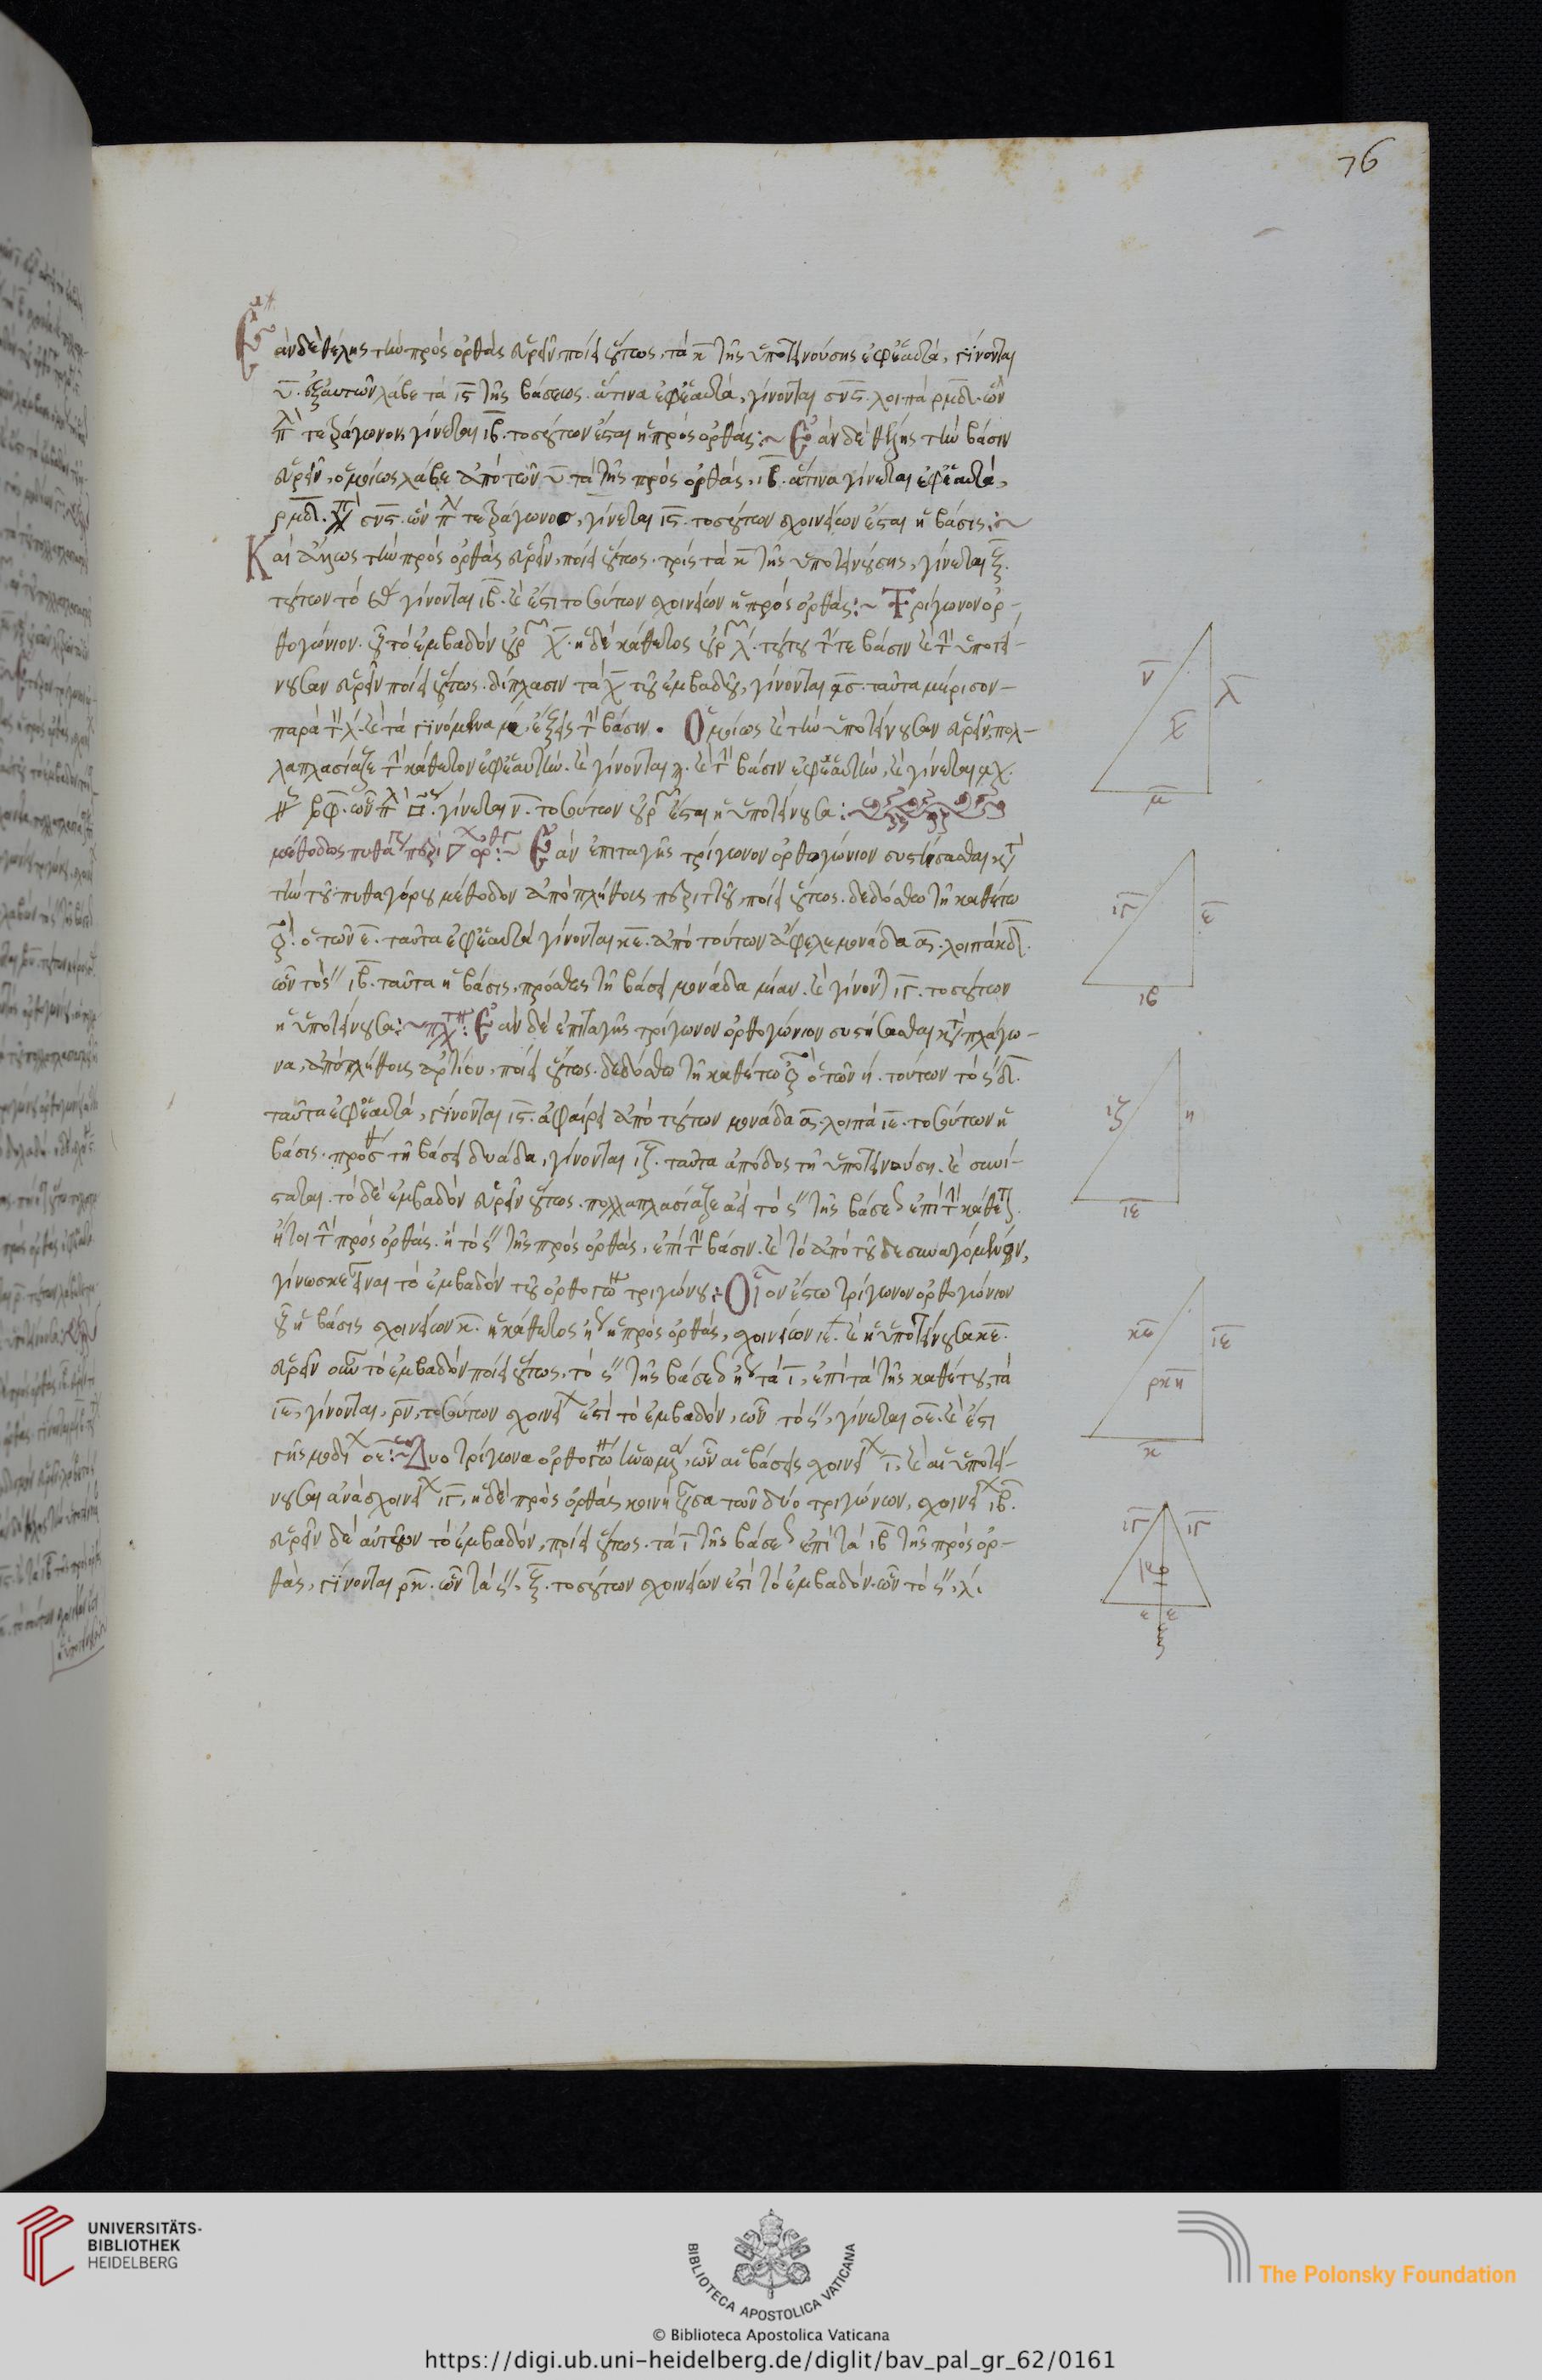 76
Ἐὰν δὲ θέλης τὴν πρὸς ὀρθὰς εὑρεῖν, ποίει οὕτως. τὰ κ̅ τῆς ὑποτεινούσης ἐφ' ἑαυτά, γίνονται
υ̅. ἐξ αὐτῶν λάβε τὰ ις̅ τῆς βάσεως. ἅτινα ἐφ' ἑαυτά, γίνονται σνς̅. λοιπὰ ρμδ̅. ὧν
πλ τετράγωνον, γίνεται ιβ̅. τοσούτων ἔσται ἡ πρὸς ὀρθάς :~ Ἐὰν δὲ θέλης τὴν βάσιν
εὑρεῖν, ὁμοίως λάβε ἀπὸ τῶν υ̅ τὰ τῆς πρὸς ὀρθάς, ιβ̅. ἅτινα γίνεται ἐφ' ἑαυτά,
ρμδ̅. λοιπὰ σνς̅. ὧν πλ τετράγωνος, γίνεται ις̅. τοσούτων σχοινίων ἔσται ἡ βάσις :~
Καὶ ἄλλως τὴν πρὸς ὀρθὰς εὑρεῖν, ποίει οὕτως. τρὶς τὰ κ̅ τῆς ὑποτεινούσης, γίνεται ξ̅.
τούτων τὸ εʹ γίνονται ιβ̅. καὶ ἔστι τοσούτων σχοινίων ἡ πρὸς ὀρθάς :~ Τρίγωνον ὀρ-
θογώνιον. οὗ τὸ ἐμβαδὸν οὐρ χ̅. ἡ δὲ κάθετος οὐρ λ̅. τούτου τήν τε βάσιν καὶ τὴν ὑποτεί-
νουσαν εὑρεῖν ποίει οὕτως. δίπλασιν τὰ χ̅ τοῦ ἐμβαδοῦ, γίνονται ασ̅. ταῦτα μέρισον
παρὰ τὴν λ̅. καὶ τὰ γινόμενα μ̅, ἕξεις τὴν βάσιν. Ὁμοίως καὶ τὴν ὑποτείνουσαν εὑρεῖν, πολ-
λαπλασίαζε τὴν κάθετον ἐφ' ἑαυτήν. καὶ γίνονται ϡ. καὶ τὴν βάσιν ἐφ' ἑαυτήν, καὶ γίνεται αχ.
βφ̅. ὧν πλ □. γίνεται ν̅. τοσούτων οὐρ ἔσται ἡ ὑποτείνουσα :
μέθοδος πυθα περὶ ὀρθ :~ Ἐὰν ἐπιταγῆς τρίγωνον ὀρθογώνιον συστήσασθαι κατὰ
τὴν τοῦ πυθαγόρου μέθοδον ἀπὸ πλήθους περιττοῦ, ποίει οὕτως. δεδόσθω τῇ καθέτω
ὁ τῶν ε̅. ταῦτα ἐφ' ἑαυτά γίνονται κε̅. ἀπὸ τούτων ἄφελε μονάδα α̅. λοιπὰ κδ̅.
ὧν τὸ ϛʺ ιβ̅. ταῦτα ἡ βάσις, πρόσθες τῇ βάσει μονάδα μίαν. καὶ γίνονται ιγ̅. τοσούτων
ἡ ὑποτείνουσα :~ Ἐὰν δὲ ἐπιταγῆς τρίγωνον ὀρθογώνιον συστήσασθαι κατὰ πλάτω-
να, ἀπὸ πλήθους ἀρτίου, ποίει οὕτως. δεδόσθω τῇ καθέτω ὁ τῶν η̅. τούτων τὸ ϛʺ δ̅.
ταῦτα ἐφ' ἑαυτά, γίνονται ις̅. ἀφαίρει ἀπὸ τούτων μονάδα α̅. λοιπὰ ιε̅. τοσούτων ἡ
βάσις. πρόσθες τῇ βάσει δυάδα, γίνονται ιζ̅. ταῦτα ἀπόδος τῇ ὑποτεινούσῃ. καὶ συνί-
σταται. τὸ δὲ ἐμβαδὸν εὑρεῖν οὕτως. πολλαπλασίαζε ἀεὶ τὸ ϛʺ τῆς βάσεως ἐπὶ τὴν κάθετον
ἤτοι τὴν πρὸς ὀρθάς. ἢ τὸ ϛʺ τῆς πρὸς ὀρθάς, ἐπὶ τὴν βάσιν. καὶ τὸ ἀπὸ τοῦδε συναγόμενον,
γίνωσκε εἶναι τὸ ἐμβαδὸν τοῦ ὀρθογω τριγώνου : Οἷον ἔστω τρίγωνον ὀρθογώνιον
οὗ ἡ βάσις σχοινίων κ̅. ἡ κάθετος ἤγουν ἡ πρὸς ὀρθάς, σχοινίων ιε̅. καὶ ἡ ὑποτείνουσα κε̅.
εὑρεῖν οὖν τὸ ἐμβαδὸν ποίει οὕτως, τὸ ϛʺ τῆς βάσεως ἤγουν τὰ ι̅, ἐπὶ τὰ τῆς καθέτου, τὰ
ιε̅, γίνονται, ρν̅, τοσούτων σχοινίων ἐστὶ τὸ ἐμβαδόν, ὧν τὸ ϛʺ, γίνεται οε̅. καὶ ἔστι
γῆς μοδίων οε̅ :~ Δύο τρίγωνα ὀρθογω ἡνωμένα, ὧν αἱ βάσεις σχοινίων ι̅, καὶ αἱ ὑποτεί-
νουσαι ἀνὰ σχοινίων ιγ̅, ἡ δὲ πρὸς ὀρθὰς κοινὴ οὖσα τῶν δύο τριγώνων, σχοινίων ιβ̅.
εὑρεῖν δὲ αὐτῶν τὸ ἐμβαδόν, ποίει οὕτως. τὰ ι̅ τῆς βάσεως ἐπὶ τὰ ιβ τῆς πρὸς ὀρ-
θάς, γίνονται ρκ̅. ὧν τὰ ϛʺ, ξ̅. τοσούτων σχοινίων ἐστὶ τὸ ἐμβαδόν. ὧν τὸ ϛʺ, λ̅.
ν̅ λ̅ χ̅ μ̅
ιγ̅ ε̅ ιβ
ιζ η ιε̅
κε̅ ιε̅ ρκη κ̅
ιγ̅ ιγ̅ ιβ ε ε ξ
UNIVERSITÄTS-
BIBLIOTHEK
HEIDELBERG
BIBLIOTECA APOSTOLICA VATICANA
The Polonsky Foundation
© Biblioteca Apostolica Vaticana
https://digi.ub.uni-heidelberg.de/diglit/bav_pal_gr_62/0161